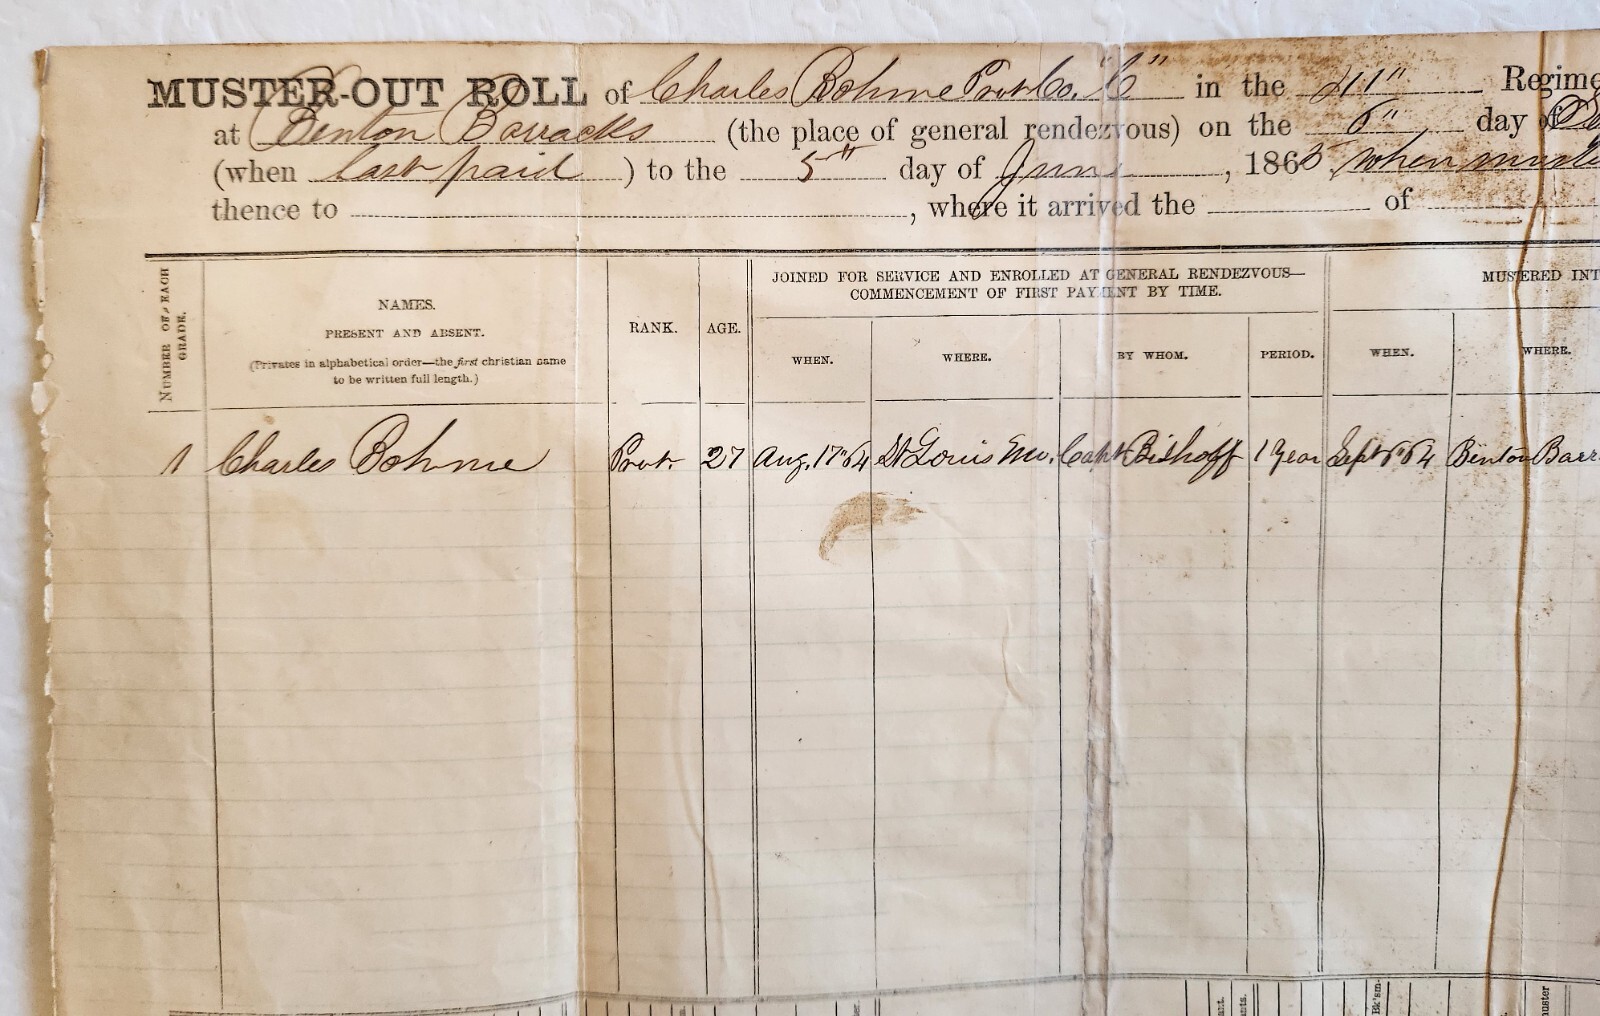 MUSTER-OUT ROLL of Charles Bohme Privt Co. "C" in the 41" Regime
at Benton Barracks (the place of general rendezvous) on the 6" day of
(when last paid ) to the 5" day of June , 1865 when muste
thence to , where it arrived the of
NUMBER OF EACH GRADE.
NAMES.
PRESENT AND ABSENT.
(Privates in alphabetical order—the first christian name
to be written full length.)
RANK.
AGE.
JOINED FOR SERVICE AND ENROLLED AT GENERAL RENDEZVOUS—
COMMENCEMENT OF FIRST PAYMENT BY TIME.
WHEN.
WHERE.
BY WHOM.
PERIOD.
MUSTERED INT
WHEN.
WHERE.
1 Charles Bohme Privt 27 Aug. 17" 64 St Louis Mo. Capt Bishoff 1 Year Sept 6" 64 Benton Barr
ant.
ants.
Bk'sm-
muster